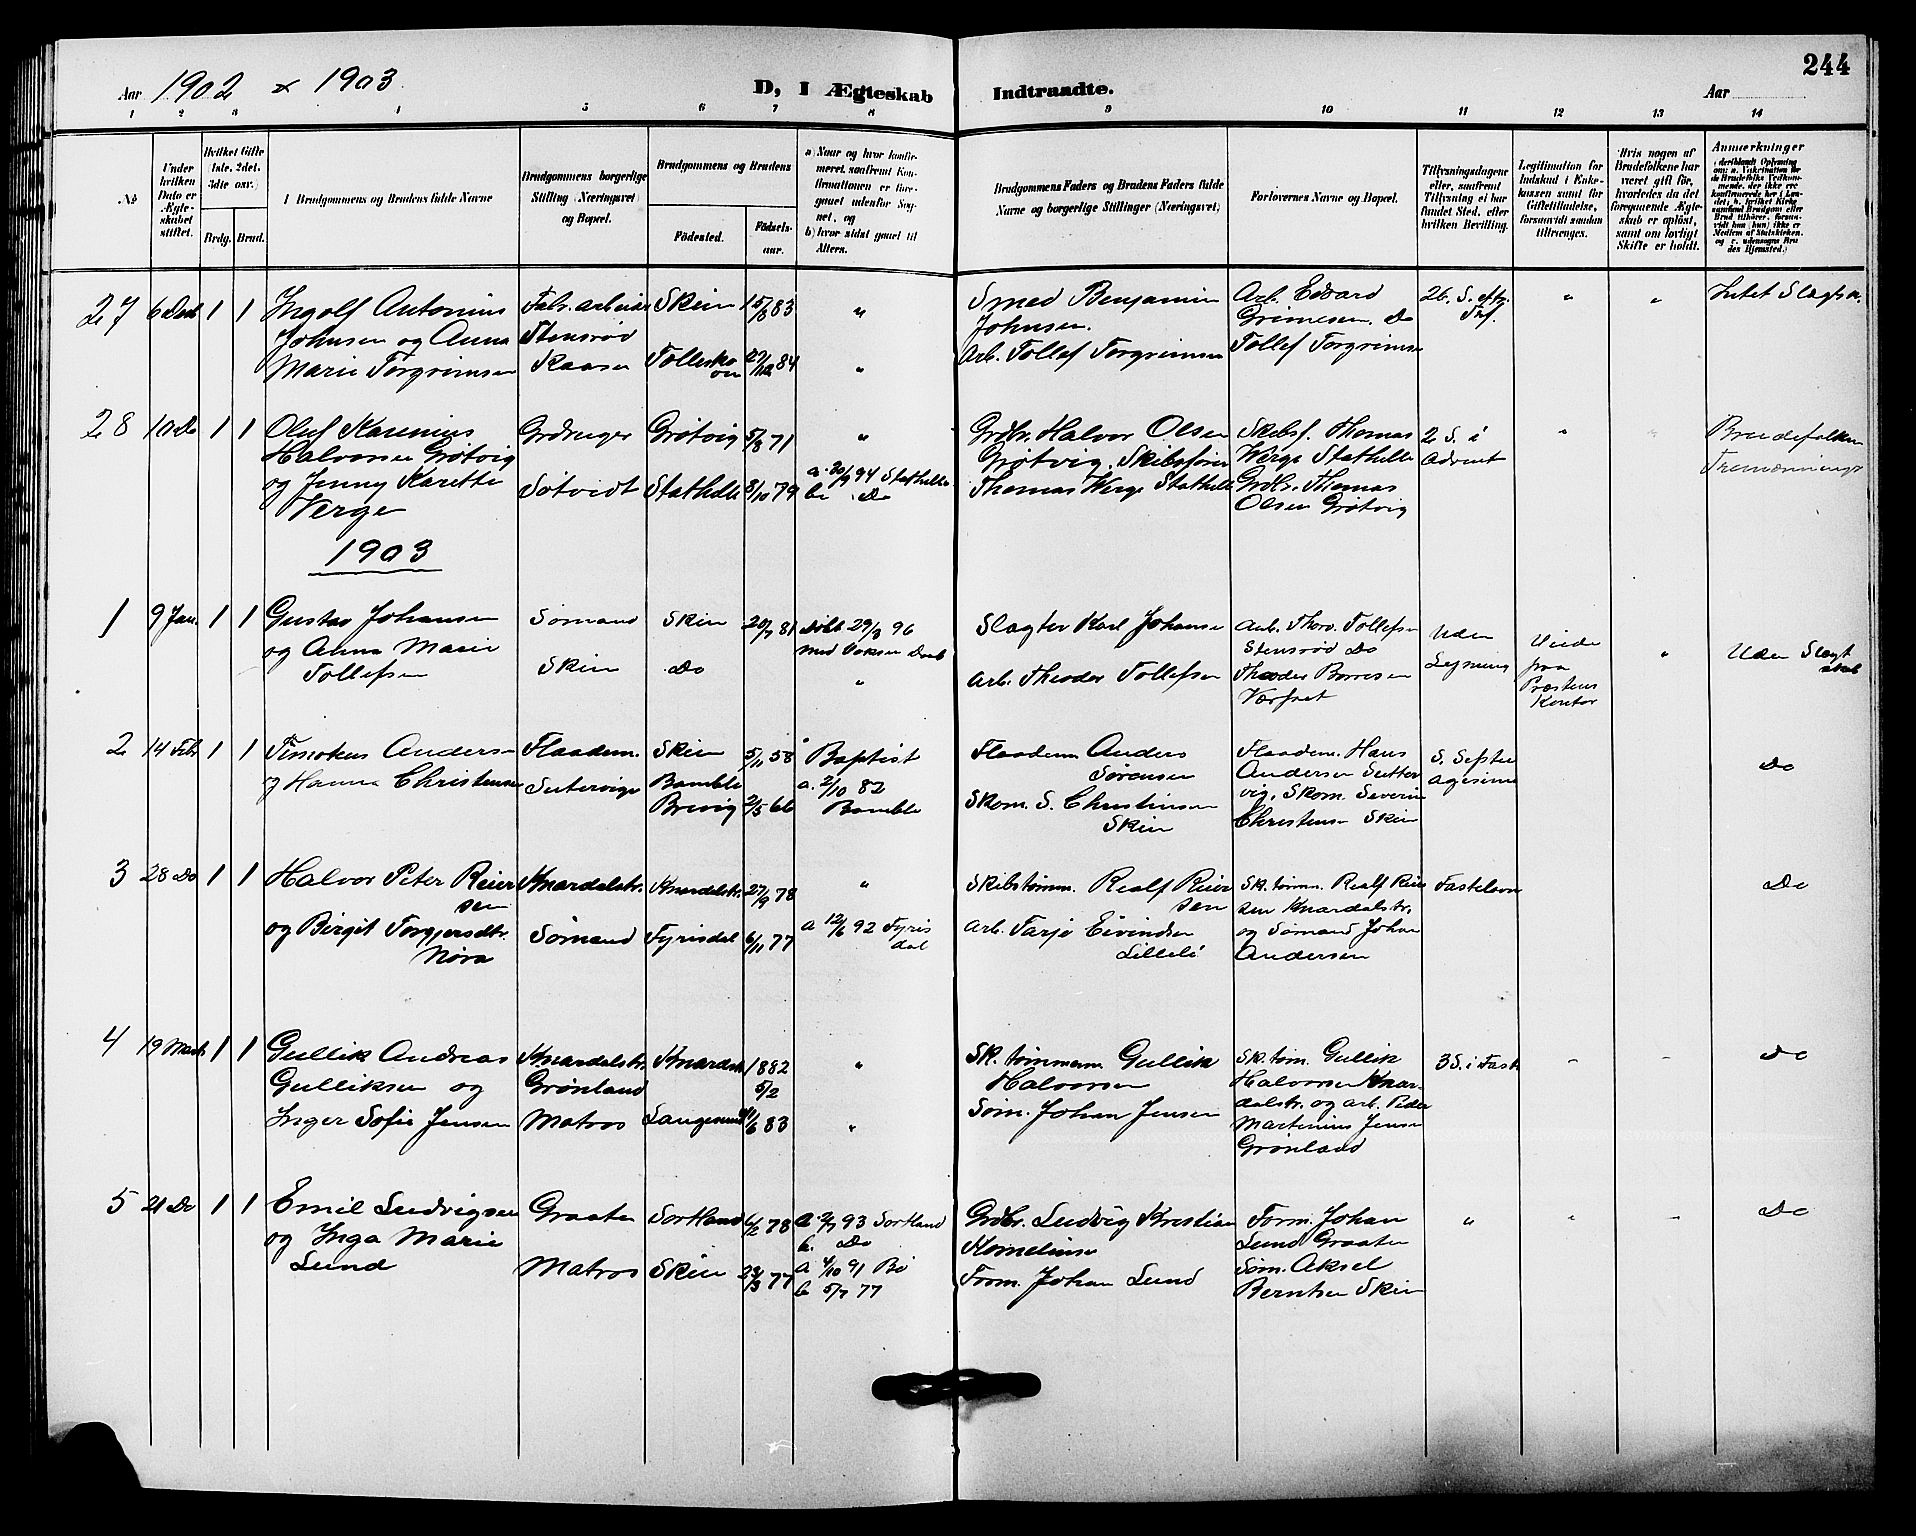 244
Aar 1902 & 1903
D, I Ægteskab Indtraadte.
Aar
1 2 3 4 5 6 7 8 9 10 11 12 13 14
No
Under hvilken Dato er Ægteskabet stiftet.
Hvilket Gifte (1ste, 2det, 3die osv.)
Brdg. Brud.
Brudgommens og Brudens fulde Navne
Brudgommens borgerlige Stilling (Næringsvei) og Bopæl.
Brudgommens og Brudens
Födested.
Födselsaar.
a) Naar og hvor konfirmeret, saafremt Konfirmationen er foregaaet udenfor Sognet, og
b) hvor sidst gaaet til Alters.
Brudgommens Faders og Brudens Faders fulde Navne og borgerlige Stillinger (Næringsvei)
Forlovernes Navne og Bopæl.
Tillysningsdagene eller, saafremt Tillysning ei har fundet Sted, efter hvilken Bevilling.
Legitimation for Indskud i Enkekassen samt for Giftetilladelse, forsaavidt saadan tiltrænges.
Hvis nogen af Brudefolkene har været gift för, hvorledes da det foregaaende Ægteskab er oplöst, samt om lovligt Skifte er holdt.
Anmærkninger
27 6 Decb 1 1 Ingolf Antonius
Johnsen og Anna
Marie Torgrimsen
Fabr. arbeider
Stensrød
Kaasen
Skien 15/8 83 "
Tolleskoven 27/12 84 "
Smed Benjamin
Johnsen.
Arb. Tollef Torgrimsen
Arb. Edvard
Grimesen. Do
Tollef Torgrimsen
26. S. eft. Tref.
" "
Intet Slagtsk.
28 10 Do 1 1 Oluf Karenius
Halvorsen Grøtvig
og Jenny Karette
Werge
Grdbruger
Søtvidt
Grøtvig 5/8 71 "
Stathelle 8/10 79 a. 30/9 94 Stathelle
b. Do
Grdbr. Halvor Olsen
Grøtvig, Skibsfører
Thomas Werge Stathelle
Skibsf. Thomas
Werge Stathelle
Grdbr. Thomas
Olsen Grøtvig
2 S. i
Advent
" "
Brudefolkene
Tremænninge
1903
1 9 Jan. 1 1 Gustav Johansen
og Anna Marie
Tollefsen
Sømand
Skien
Skien 20/7 81 Døbt 29/3 96
med Voksen Daab
Do "
Slagter Karl Johansen
Arb. Theodor Tollefsen
Arb. Thov. Tollefsen
Stensrød Do
Theodor Borresen
Værftet
Uden
Lysning
fra
Præstens
Kontor
"
Uden Slagt
skab
2 14 Febr 1 1 Timoteus Andersen
og Hanna Christensen
Flaadem.
Sutervige
Skien 5/11 58 Baptist
Bamble
Brevig 2/5 66 a. 2/10 82
Bamble
Flaadem Anders
Sørensen
Skom. S. Christensen
Skien
Flaadem. Hans
Andersen Sutter
vig, Skom. Severin
Christensen Skien
S. Septua
agesima
Do
3 28 Do 1 1 Halvor Peter Reier
sen
og Birgit Torgjersdtr.
Nøra
Knardalstr.
Sømand
Knardalstr. 27/9 78 "
Fyrisdal 6/11 77 a 12/6 92 Fyris
dal
Skibstømm. Realf Reier
sen
Arb. Tarje Eivindsen
Lilleli
Sk. tømm. Realf Reier
sen Knardalstr.
og Sømand Johan
Andersen
Fastelavn
Do
4 19 Marts 1 1 Gullik Andreas
Gulliksen og
Inger Sofie Jensen
Knardalstr.
Grønland
Matros
Knardalstr 1882
5/2 "
Langesund 11/6 83 "
Sk. tømmerm. Gullik
Halvorsen
Søm. Johan Jensen
Sk. tøm. Gullik
Halvorsen Knar-
dalstr. og arb. Peder
Martinius Jensen
Grønland
3 S. i Faste
Do
5 21 Do 1 1 Emil Ludvigsen
og Inga Marie
Lund
Graaten
Matros
Sortland 6/2 78 a 2/7 93 Sortland
b. Do
Skien 23/3 77 a 4/10 91 Bö
b 5/7 77
Grdbr. Ludvig Kristian
Korneliusen
Form. Johan Lund
Form. Johan
Lund Graaten
Søm. Aksel
Berntsen Skien
"
Do